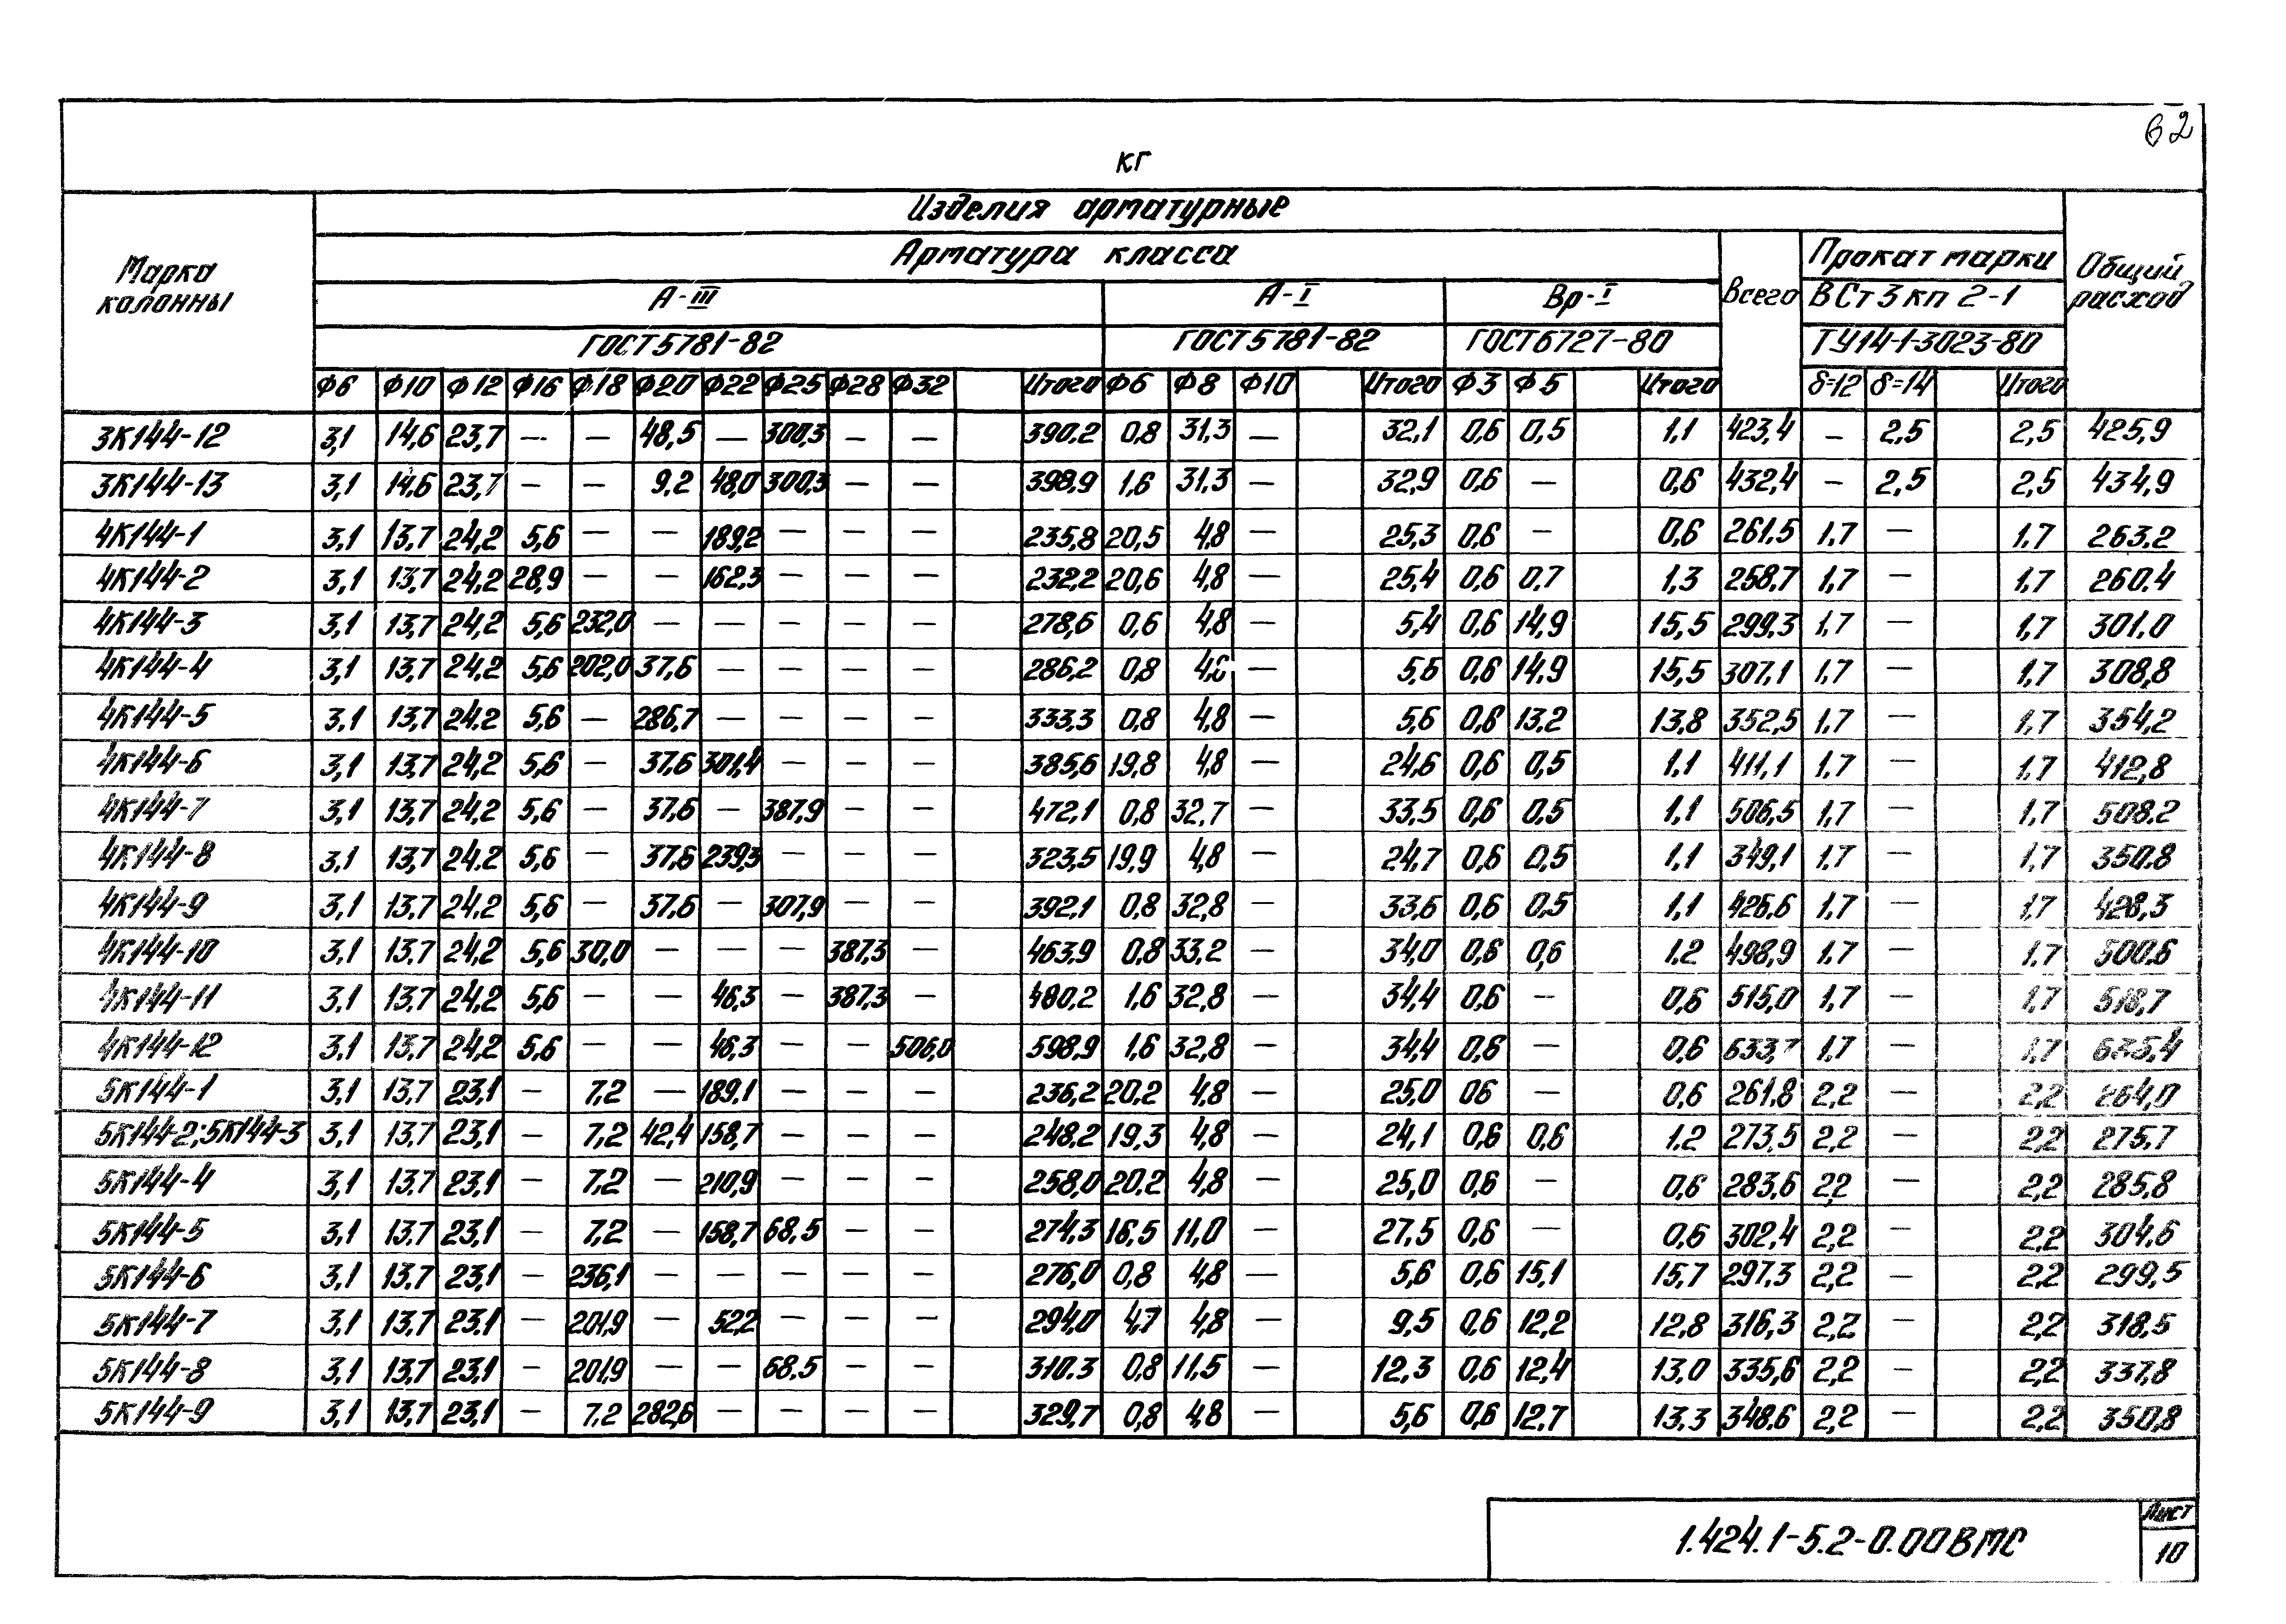 62
кг
Марка колонны
Изделия арматурные
Общий расход
Арматура класса
Всего
Прокат марки
А-III
А-I
Вр-I
ВСт3кп 2-1
ГОСТ5781-82
ГОСТ5781-82
ГОСТ6727-80
ТУ14-1-3023-80
Ф6 Ф10 Ф12 Ф16 Ф18 Ф20 Ф22 Ф25 Ф28 Ф32 Итого Ф6 Ф8 Ф10 Итого Ф3 Ф5 Итого δ=12 δ=14 Итого
3К144-12 3,1 14,6 23,7 — — 48,5 — 300,3 — — 390.2 0,8 31,3 — 32,1 0,6 0,5 1,1 423,4 — 2,5 2,5 425,9
3К144-13 3,1 14,6 23,7 — — 9,2 48,0 300,3 — — 398,9 1,6 31,3 — 32,9 0,6 — 0,6 432,4 — 2,5 2,5 434,9
4К144-1 3,1 13,7 24,2 5,6 — — 189,2 — — — 235,8 20,5 4,8 — 25,3 0,6 — 0,6 261,5 1.7 — 1.7 263.2
4К144-2 3,1 13,7 24,2 28,9 — — 162,3 — — — 232,2 20,6 4,8 — 25,4 0,6 0,7 1,3 258,7 1,7 — 1,7 260.4
4К144-3 3,1 13,7 24,2 5,6 232,0 — — — — — 278,6 0,6 4,8 — 5,4 0,6 14,9 15,5 299,3 1,7 — 1,7 301.0
4К144-4 3,1 13,7 24,2 5,6 202,0 37,6 — — — — 286,2 0,8 — 5,6 0,6 14,9 15,5 307,1 1,7 — 1,7 308,8
4К144-5 3,1 13,7 24.2 5,6 — 286,7 — — — — 333,3 0,8 4,8 — 5,6 0,6 13,2 13,8 352,5 1,7 — 1,7 354,2
4К144-6 3,1 13,7 24,2 5,6 — 37,6 301,4 — — — 385,6 19,8 4,8 — 24,6 0,6 0,5 1,1 411,1 1,7 — 1,7 412,8
4К144-7 3,1 13,7 24,2 5,6 — 37,6 — 387,9 — — 472,1 0,8 32,7 — 33,5 0,6 0,5 1,1 506,5 1,7 — 1,7 508.2
4К144-8 3,1 13,7 24.2 5,6 — 37,6 239,3 — — — 323,5 19,9 4,8 — 24,7 0,6 0,5 1,1 349,1 1.7 — 1,7 350.8
4К144-9 3,1 13,7 24,2 5,6 — 37,6 — 307,9 — — 392,1 0,8 32,8 — 33,6 0,6 0,5 1,1 426,6 1,7 — 1,7 428,3
4К144-10 3,1 13,7 24,2 5,6 30,0 — — — 387,3 — 463,9 0,8 33,2 — 34,0 0,6 0,6 1.2 498,9 1.7 — 1,7 500.6
4К144-11 3,1 13,7 24,2 5,6 — — 46,3 — 387,3 — 480.2 1,6 32,8 — 34,4 0,6 — 0,6 515,0 1,7 — 1,7
4К144-12 3,1 13,7 24,2 5,6 — — 46,3 — — 506,0 598,9 1,6 32,8 — 34,4 0,6 — 0,6 633,7 1,7 — 1,7
5К144-1 3,1 13,7 23,1 — 7.2 — 189,1 — — — 236,2 20,2 4,8 — 25,0 06 — 0,6 261.8 2,2 — 2,2 264,0
5К144-2; 5К144-3 3,1 13,7 23,1 — 7,2 42,4 158,7 — — — 248,2 19,3 4,8 — 24,1 0,6 0,6 1.2 273,5 2,2 — 2,2 275.7
5К144-4 3,1 13,7 23,1 — 7,2 — 210,9 — — — 258,0 20,2 4,8 — 25,0 0,6 — 0,6 283,6 2,2 — 2,2 285,8
5К144-5 3,1 13,7 23,1 — 7,2 — 158,7 68,5 — — 274,3 16,5 11,0 — 27,5 0,6 — 0,6 302,4 2,2 — 2,2 304,6
5К144-6 3,1 13,7 23,1 — 236,1 — — — — — 276,0 0,8 4,8 — 5,6 0,6 15,1 15,7 297,3 2,2 — 2,2 299,5
5К144-7 3,1 13,7 23,1 — 201,9 — 52,2 — — — 294,0 4,7 4,8 — 9,5 0,6 12,2 12,8 316,3 2,2 — 2,2 318,5
5К144-8 3,1 13,7 23,1 — 201,9 — — 68,5 — — 310.3 0,8 11,5 — 12,3 0,6 12,4 13,0 335,6 2,2 — 2,2 337,8
5К144-9 3,1 13,7 23,1 — 7.2 282,6 — — — — 329,7 0,8 4,8 — 5,6 0,6 12,7 13,3 348,6 2,2 — 2,2 350,8
1.424.1-5.2-0.00ВМС
Лист
10